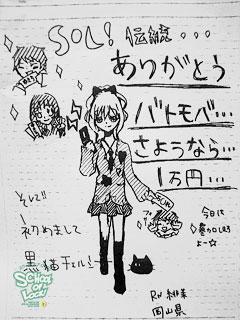 SOL! 伝説...
ありがとう
バトモバ...
さようなら...
1万円...
そして!!
初めまして
黒猫チェル!
今日に
RN
岡山県
SCHOOL OF LOCK!